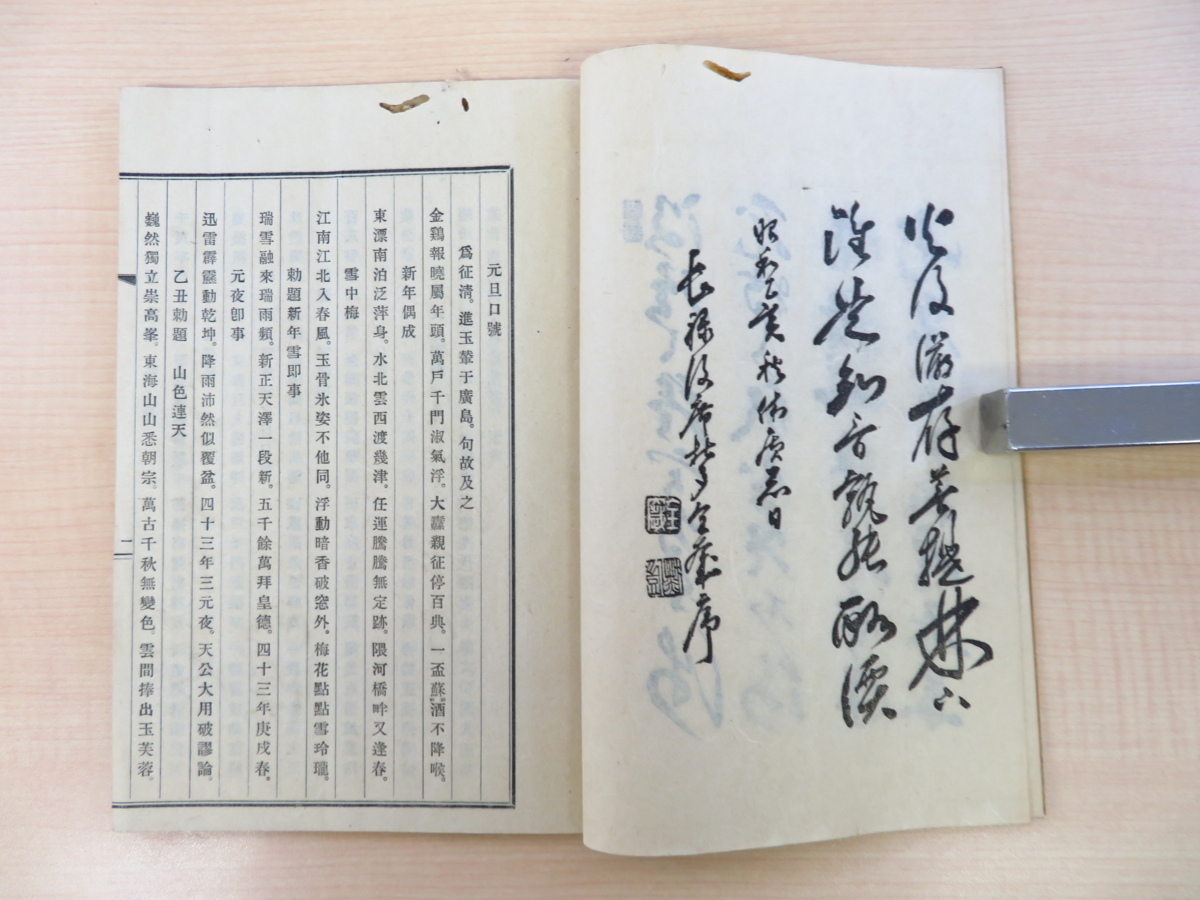 誰是知音
昭和乙亥秋
長
序
元旦口號
爲征清。進玉輦于廣島。句故及之
金鷄報曉屬年頭。萬戸千門淑氣浮。大纛親征停百典。一盃蘇酒不降喉。
新年偶成
東漂南泊泛萍身。水北雲西渡幾津。任運騰騰無定跡。隈河橋畔又逢春。
雪中梅
江南江北入春風。玉骨氷姿不他同。浮動暗香破窓外。梅花點點雪玲瓏。
勅題新年雪即事
瑞雪融來瑞雨頻。新正天澤一段新。五千餘萬拜皇德。四十三年庚戌春。
元夜卽事
迅雷霹靂動乾坤。降雨沛然似覆盆。四十三年三元夜。天公大用破謬論。
乙丑勅題　山色連天
巍然獨立崇高峯。東海山山悉朝宗。萬古千秋無變色。雲間捧出玉芙蓉。
二